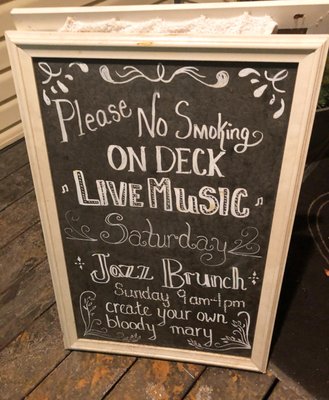 Please No Smoking
ON DECK
LIVE MUSIC
Saturday
Jazz Brunch
Sunday 9am-1pm
create your own
bloody mary